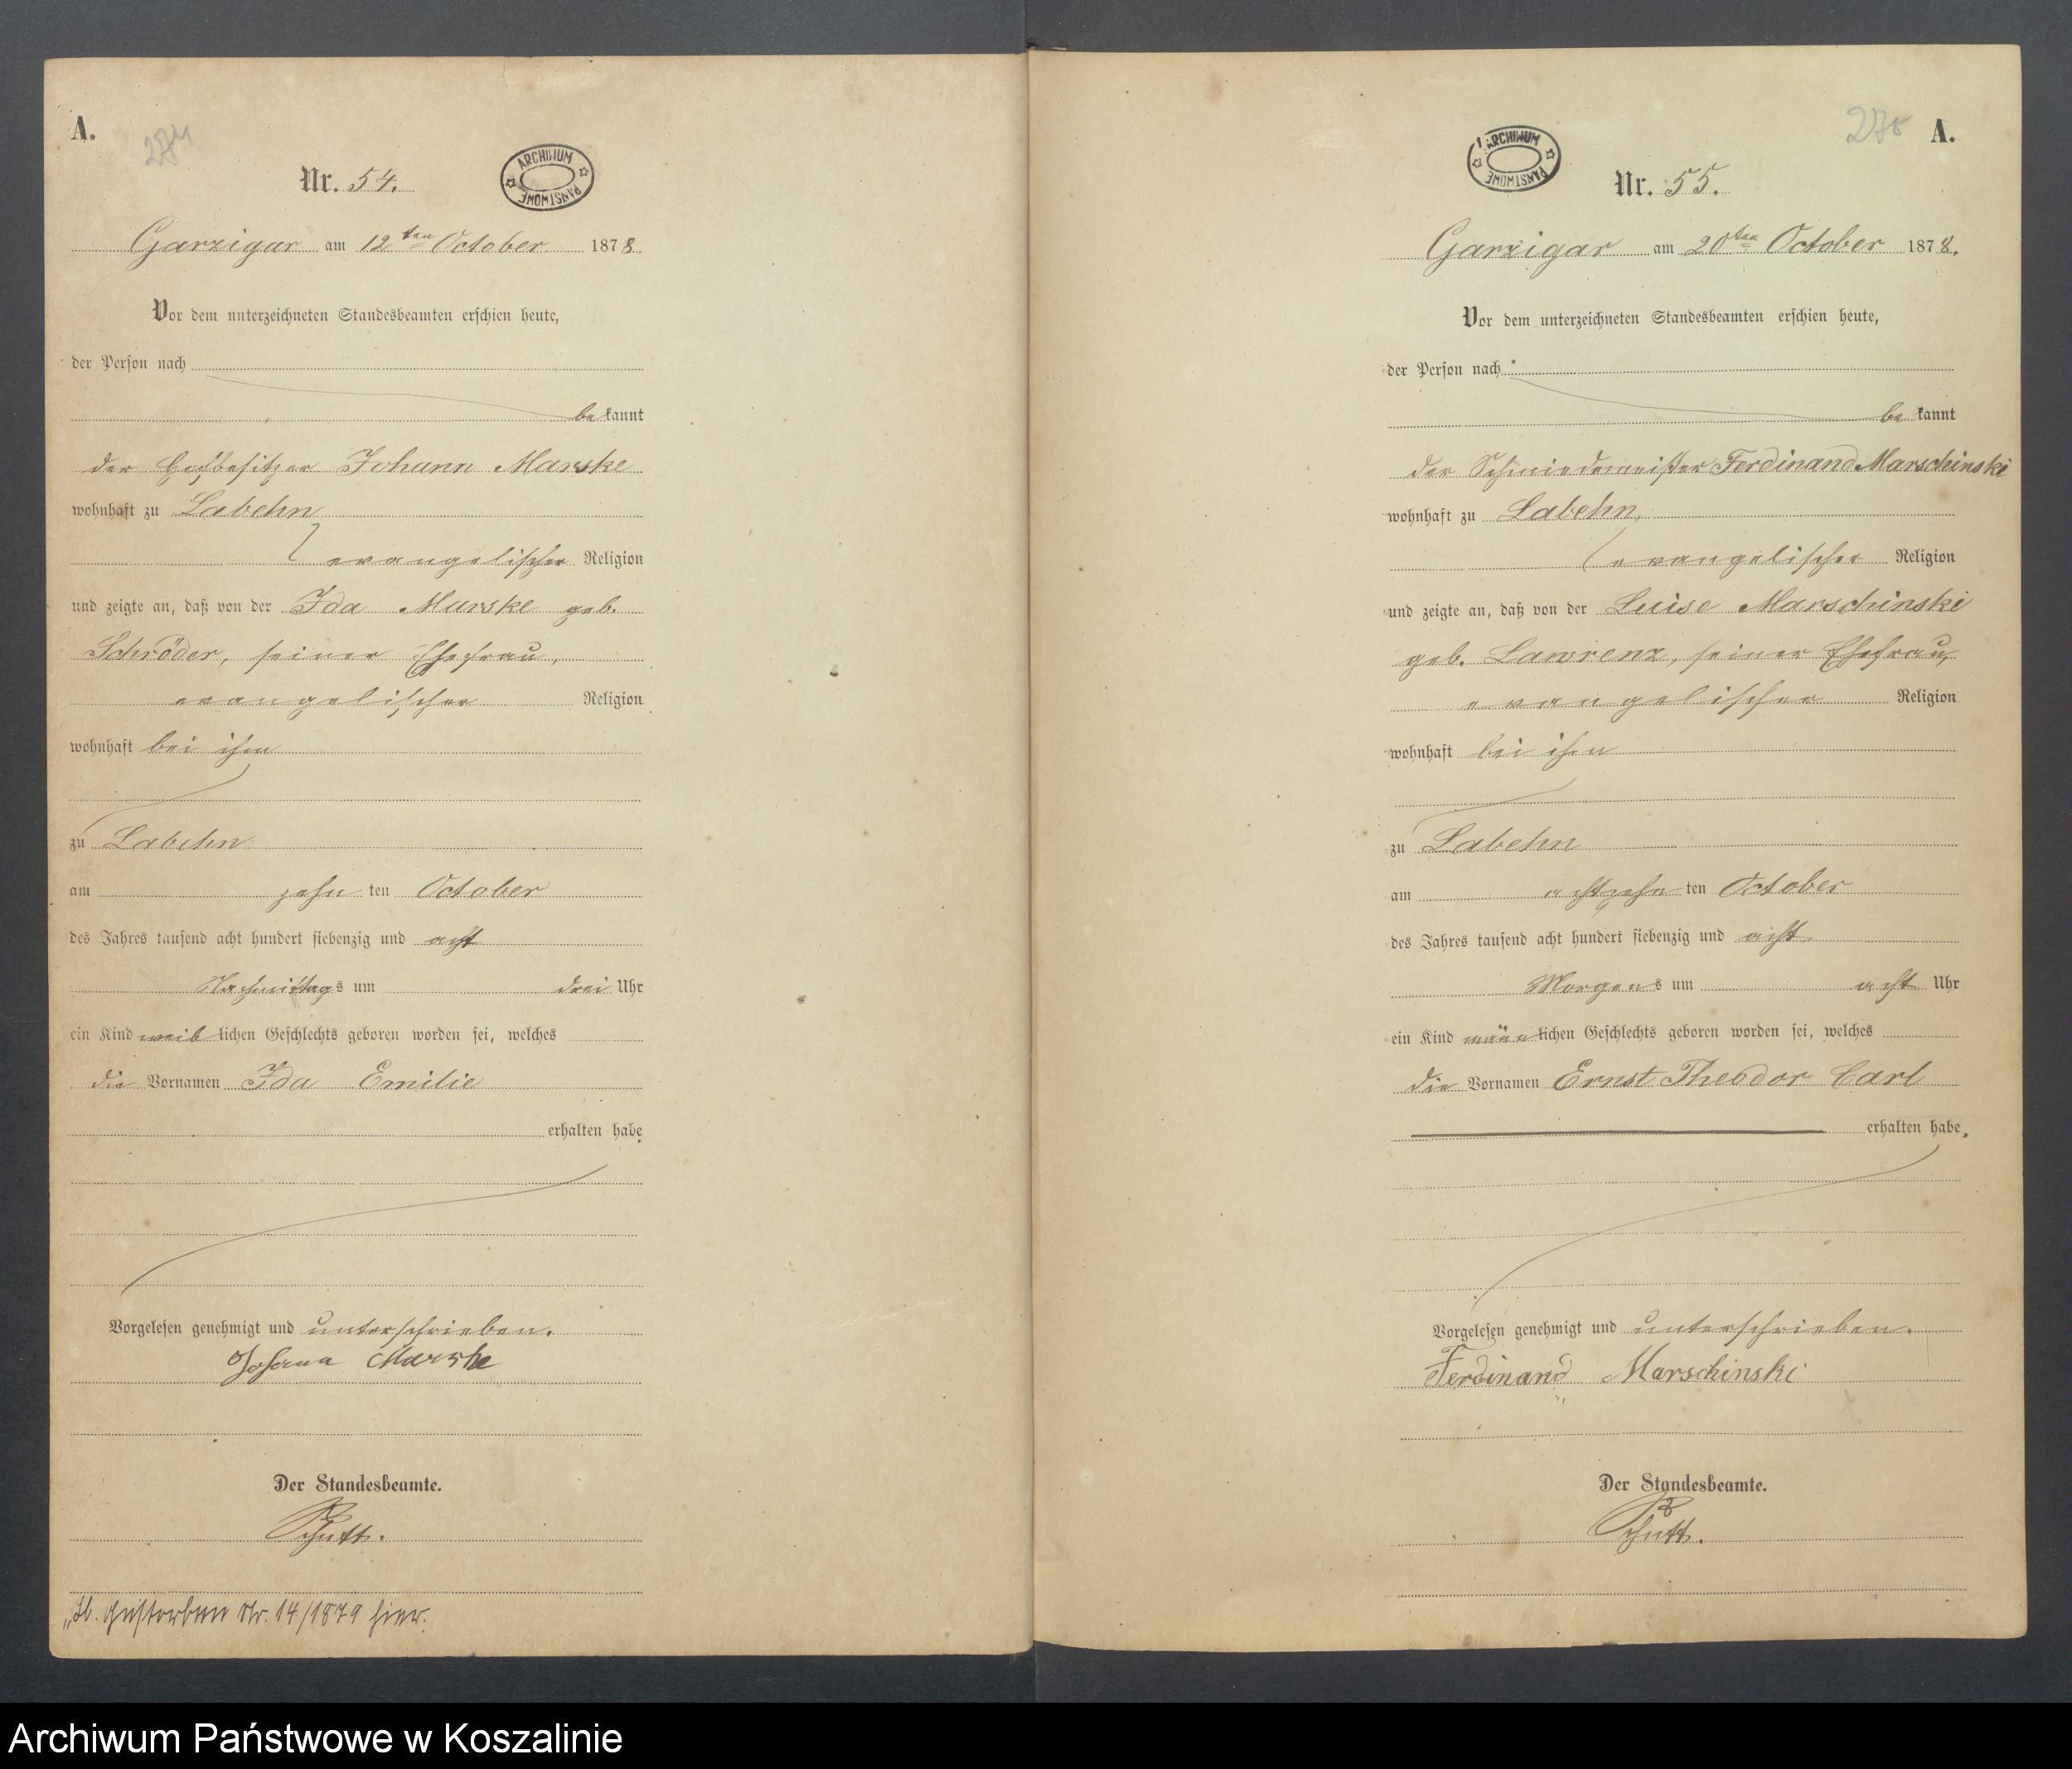 A.
274
Nr. 54.
ARCHIWUM PAŃSTWOWE
Garzigar am 12ten October 1878
Vor dem unterzeichneten Standesbeamten erschien heute,
der Person nach
bekannt
der Hofbesitzer Johann Marske
wohnhaft zu Labehn
evangelischer Religion
und zeigte an, daß von der Ida Marske geb.
Schröder, seiner Ehefrau,
evangelischer Religion
wohnhaft bei ihm
zu Labehn
am zehn ten October
des Jahres tausend acht hundert siebenzig und acht
Nachmittags um drei Uhr
ein Kind weiblichen Geschlechts geboren worden sei, welches
die Vornamen Ida Emilie
erhalten habe
Vorgelesen genehmigt und unterschrieben.
Johann Marske
Der Standesbeamte.
gestorben Nr. 14/1879 hier.
A.
Nr. 55.
ARCHIWUM PAŃSTWOWE
Garzigar am 20ten October 1878.
Vor dem unterzeichneten Standesbeamten erschien heute,
der Person nach
bekannt
der Schmiedemeister Ferdinand Marschinski
wohnhaft zu Labehn,
evangelischer Religion
und zeigte an, daß von der Luise Marschinski
geb. Lawrenz, seiner Ehefrau,
evangelischer Religion
wohnhaft bei ihm
zu Labehn
am achtzehn ten October
des Jahres tausend acht hundert siebenzig und acht
Morgens um acht Uhr
ein Kind männlichen Geschlechts geboren worden sei, welches
die Vornamen Ernst Theodor Carl
erhalten habe.
Vorgelesen genehmigt und unterschrieben.
Ferdinand Marschinski
Der Standesbeamte.
Archiwum Państwowe w Koszalinie